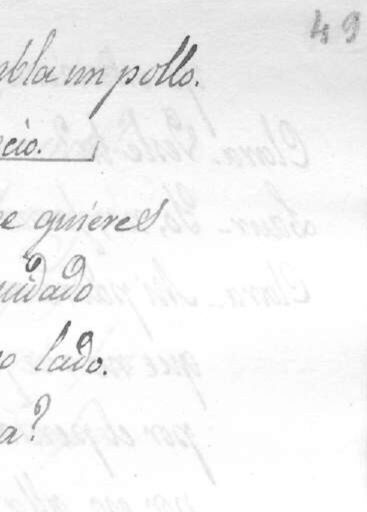 49
abla un pollo.
cio.
e quieres
uidado
o lado.
a?